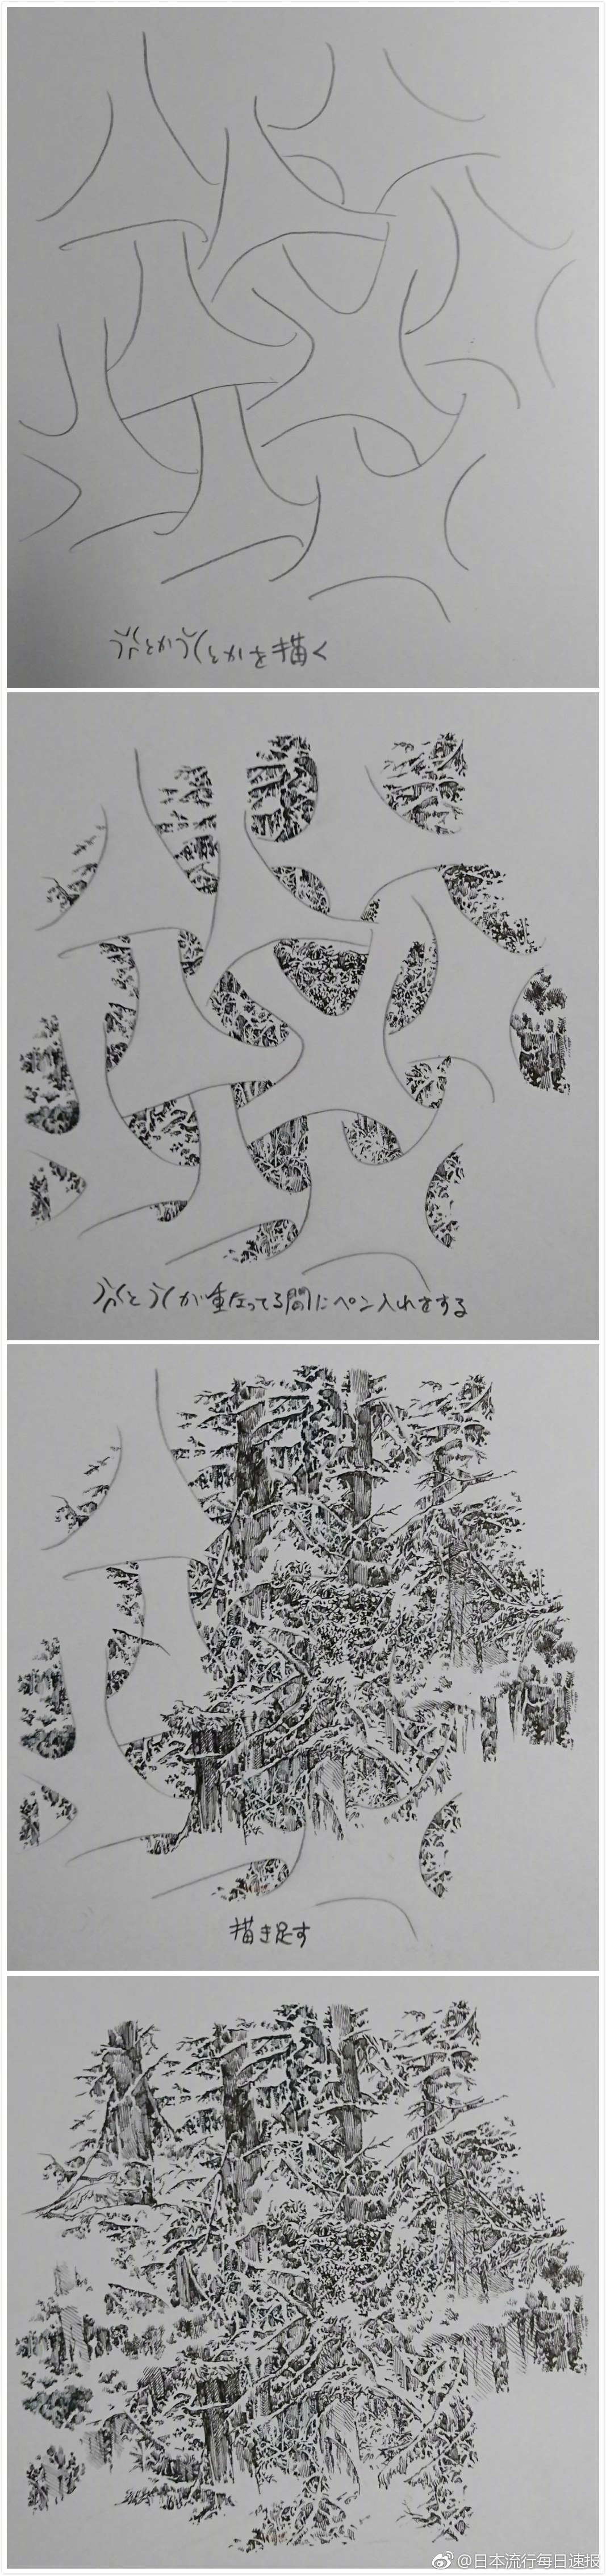 とか とかを描く
と が重なってる間にペン入れをする
描き足す
@日本流行每日速报